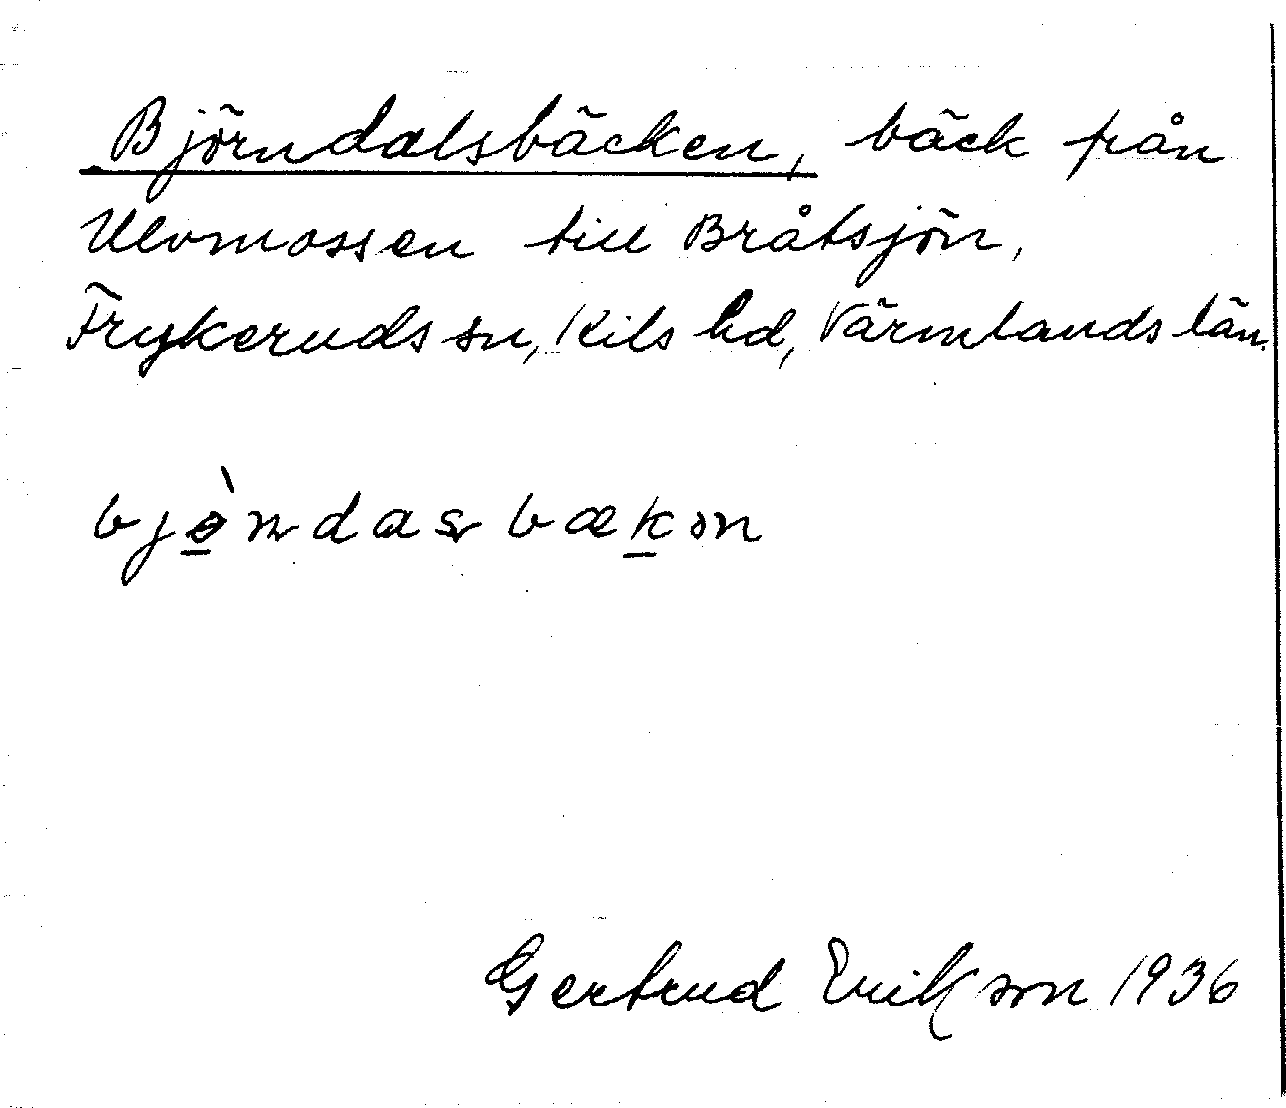 Björndalsbäcken, bäck från
Ulvmossen till Bråtsjön,
Frykeruds sn, Kils hd, Värmlands län.
bjø̀ndasbækən
Gertrud Erikson 1936